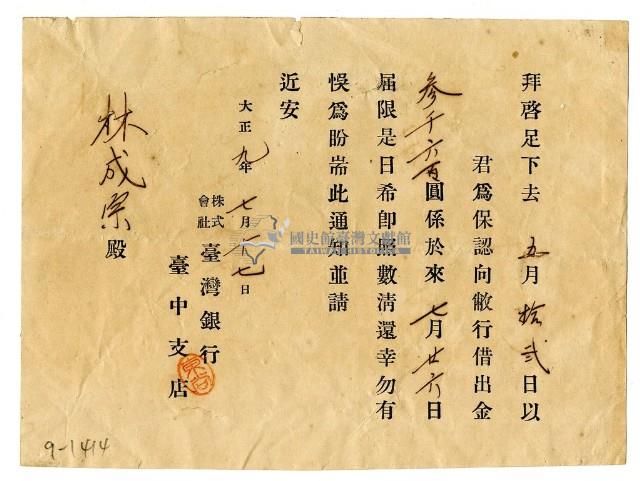 拜啓足下去五月拾弍日以
君爲保認向敝行借出金
參千六百圓係於來七月廿六日
届限是日希卽照數淸還幸勿有
悞爲盼耑此通知並請
近安
大正九年七月十七日
株式會社臺灣銀行
臺中支店
林成宗殿
國史館臺灣文獻館
TAIWAN HISTORICA
9-1414